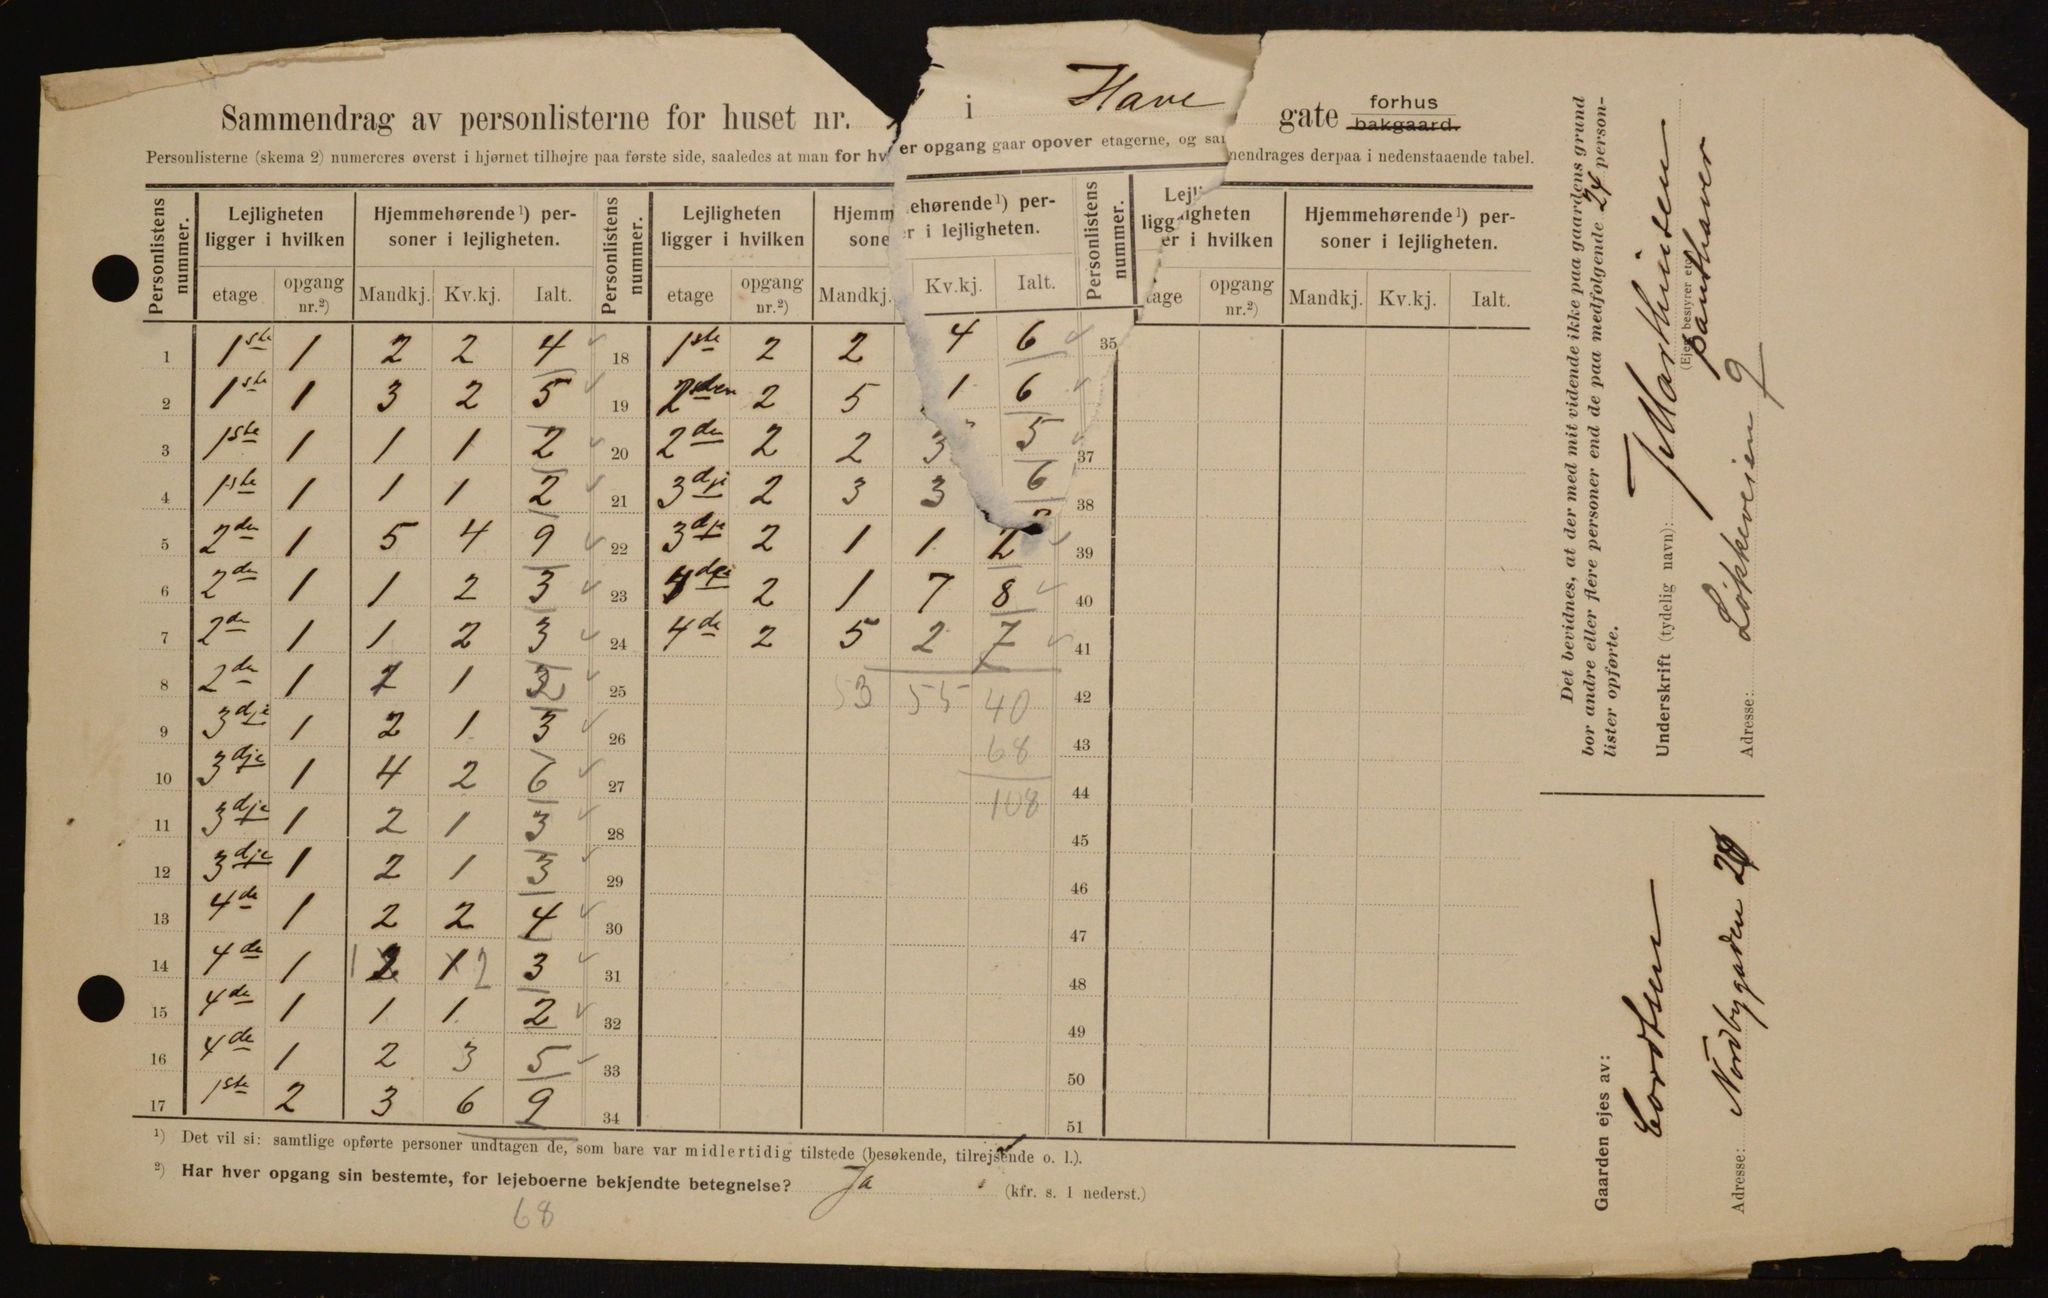 Sammendrag av personlisterne for huset nr. i Have gate forhus bakgaard.
Personlisterne (skema 2) numereres øverst i hjørnet tilhøjre paa første side, saaledes at man for hver opgang gaar opover etagerne, og sammendrages derpaa i nedenstaaende tabel.
Personlistens nummer. Lejligheten ligger i hvilken Hjemmehørende¹) personer i lejligheten. Personlistens nummer. Lejligheten ligger i hvilken Hjemmehørende¹) personer i lejligheten. Personlistens nummer. Lejligheten ligger i hvilken Hjemmehørende¹) personer i lejligheten.
etage opgang nr.²) Mandkj. Kv.kj. Ialt. etage opgang nr.²) Mandkj. Kv.kj. Ialt. etage opgang nr.²) Mandkj. Kv.kj. Ialt.
1 1ste 1 2 2 4 18 1ste 2 2 4 6 35
2 1ste 1 3 2 5 19 2den 2 5 1 6
3 1ste 1 1 1 2 20 2den 2 2 3 5 37
4 1ste 1 1 1 2 21 3dje 2 3 3 6 38
5 2den 1 5 4 9 22 3dje 2 1 1 2 39
6 2den 1 1 2 3 23 4de 2 1 7 8 40
7 2den 1 1 2 3 24 4de 2 5 2 7 41
8 2den 1 1 25 53 55 40 42
9 3dje 1 2 1 3 26 68 43
10 3dje 1 4 2 6 27 108 44
11 3dje 1 2 1 3 28 45
12 3dje 1 2 1 3 29 46
13 4de 1 2 2 4 30 47
14 4de 1 1 2 1 2 3 31 48
15 4de 1 1 1 2 32 49
16 4de 1 2 3 5 33 50
17 1ste 2 3 6 9 34 51
¹) Det vil si: samtlige opførte personer undtagen de, som bare var midlertidig tilstede (besøkende, tilrejsende o. l.).
²) Har hver opgang sin bestemte, for lejeboerne bekjendte betegnelse? Ja (kfr. s. 1 nederst.)
68
Det bevidnes, at der med mit vidende ikke paa gaardens grund
bor andre eller flere personer end de paa medfølgende 24 person-
lister opførte.
Underskrift (tydelig navn): T. Marthinsen
(Ejer, bestyrer etc.) panthaver
Adresse: Løkkeveien 9
Gaarden ejes av: Cordtsen
Adresse: Nordbygaden